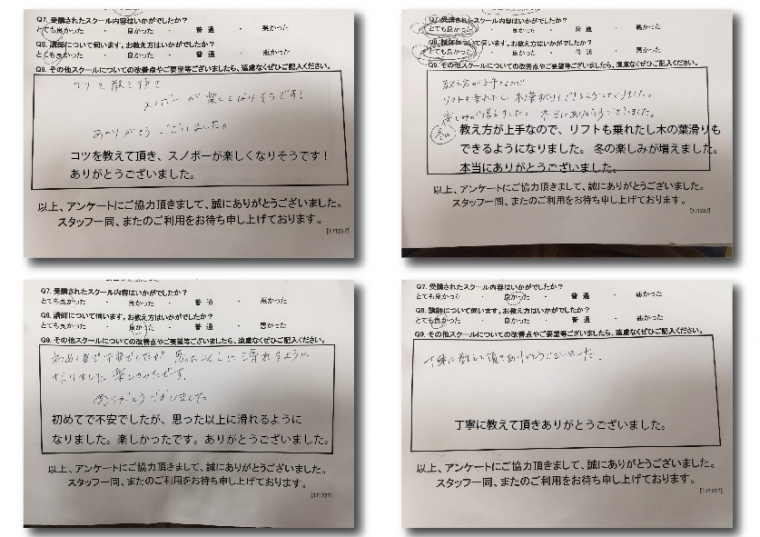 Q7. 受講されたスクール内容はいかがでしたか？
とても良かった ・ 良かった ・ 普 通 ・ 悪かった
Q8. 講師について伺います。お教え方はいかがでしたか？
とても良かった ・ 良かった ・ 普 通 ・ 悪かった
Q9. その他スクールについての改善点やご要望等ございましたら、遠慮なくぜひご記入ください。
コツを教えて頂き
スノボーが楽しくなりそうです！
ありがとうございました。
コツを教えて頂き、スノボーが楽しくなりそうです！
ありがとうございました。
以上、アンケートにご協力頂きまして、誠にありがとうございました。
スタッフ一同、またのご利用をお待ち申し上げております。
[171227]
Q7. 受講されたスクール内容はいかがでしたか？
とても良かった ・ 良かった ・ 普 通 ・ 悪かった
Q8. 講師について伺います。お教え方はいかがでしたか？
とても良かった ・ 良かった ・ 普 通 ・ 悪かった
Q9. その他スクールについての改善点やご要望等ございましたら、遠慮なくぜひご記入ください。
教え方が上手なので
リフトも乗れたし木の葉滑りもできるようになりました。
楽しみが増えました。本当にありがとうございました。
冬の
教え方が上手なので、リフトも乗れたし木の葉滑りも
できるようになりました。 冬の楽しみが増えました。
本当にありがとうございました。
以上、アンケートにご協力頂きまして、誠にありがとうございました。
スタッフ一同、またのご利用をお待ち申し上げております。
[171227]
Q7. 受講されたスクール内容はいかがでしたか？
とても良かった ・ 良かった ・ 普 通 ・ 悪かった
Q8. 講師について伺います。お教え方はいかがでしたか？
とても良かった ・ 良かった ・ 普 通 ・ 悪かった
Q9. その他スクールについての改善点やご要望等ございましたら、遠慮なくぜひご記入ください。
初めてで不安でしたが 思った以上に滑れるように
なりました 楽しかったです。
ありがとうございました
初めてで不安でしたが、思った以上に滑れるように
なりました。楽しかったです。ありがとうございました。
以上、アンケートにご協力頂きまして、誠にありがとうございました。
スタッフ一同、またのご利用をお待ち申し上げております。
[171227]
Q7. 受講されたスクール内容はいかがでしたか？
とても良かった ・ 良かった ・ 普 通 ・ 悪かった
Q8. 講師について伺います。お教え方はいかがでしたか？
とても良かった ・ 良かった ・ 普 通 ・ 悪かった
Q9. その他スクールについての改善点やご要望等ございましたら、遠慮なくぜひご記入ください。
丁寧に教えて頂きありがとうございました。
丁寧に教えて頂きありがとうございました。
以上、アンケートにご協力頂きまして、誠にありがとうございました。
スタッフ一同、またのご利用をお待ち申し上げております。
[171227]